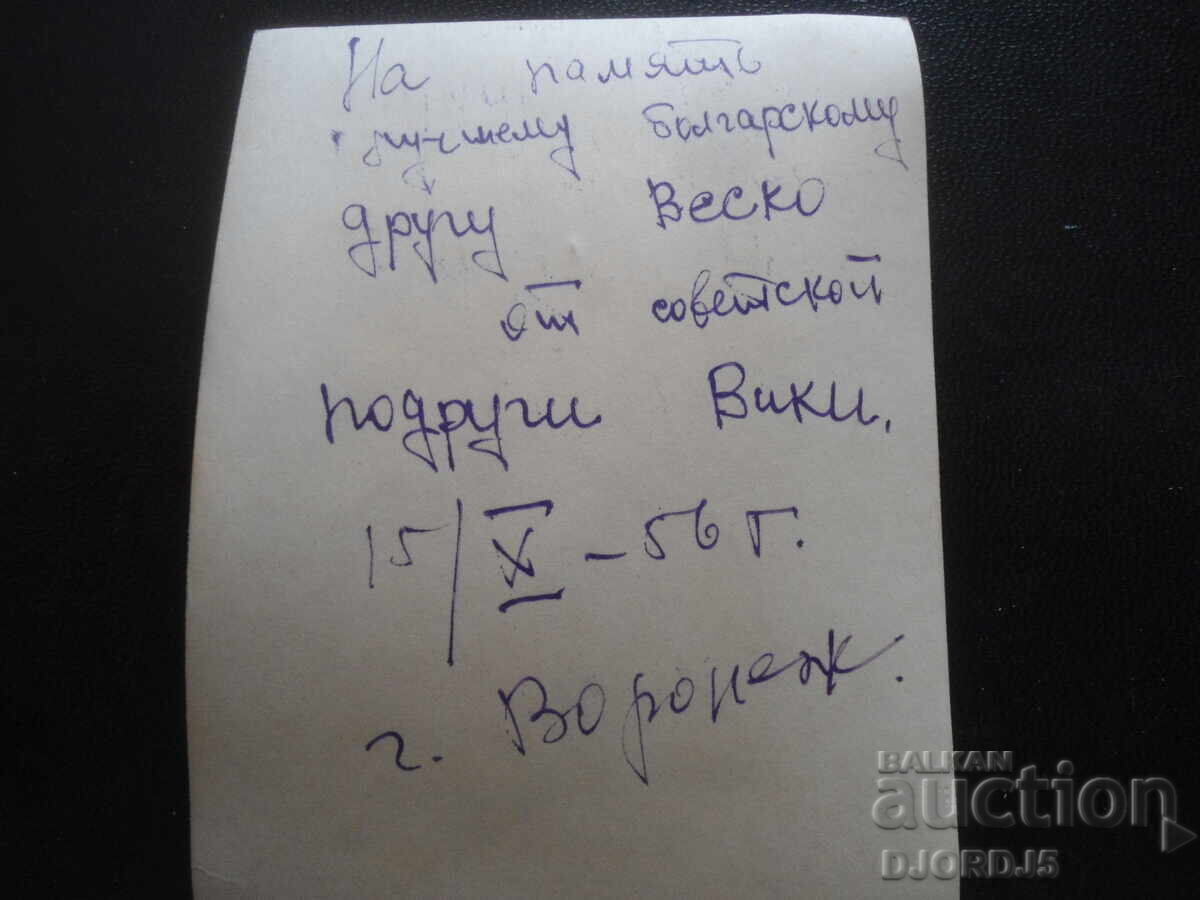 На память
лучшему болгарскому
другу Веско
от советской
подруги Вики.
15/X-56 г.
г. Воронеж.
BALKAN
auction
DJORDJ5